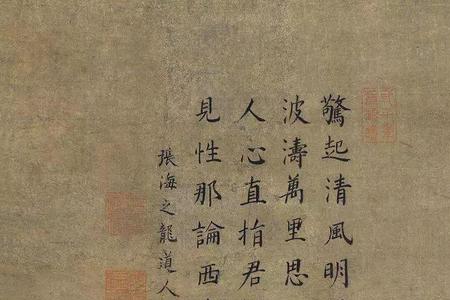 驚起清風明
波濤萬里思
人心直指君
見性那論西
張海之龍道人